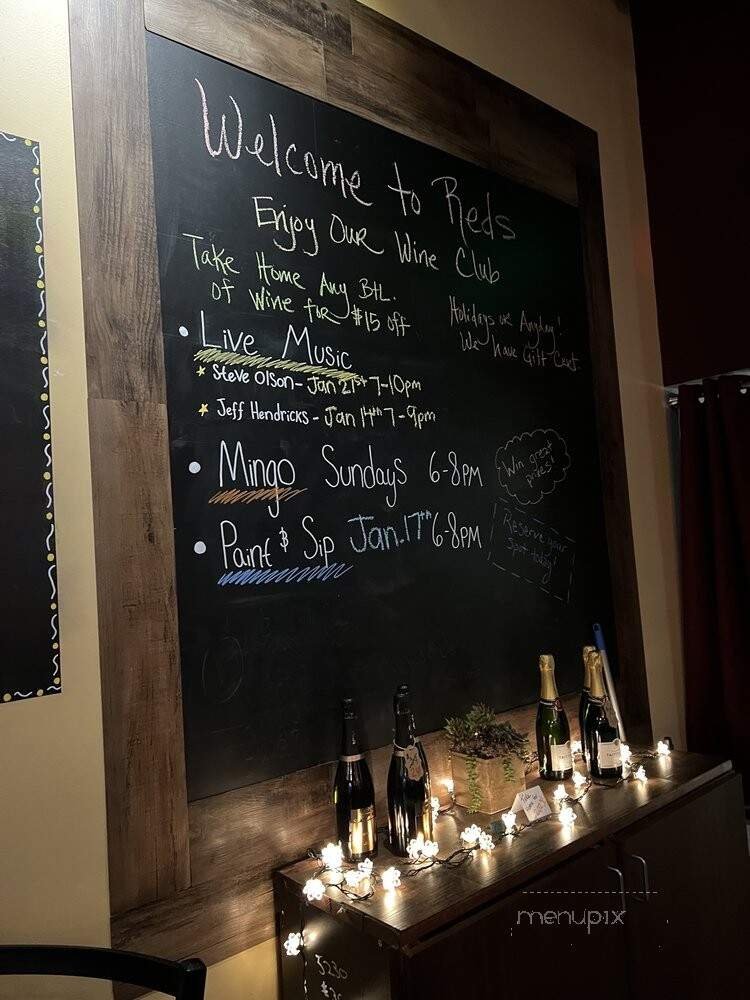 Welcome to Reds
Enjoy Our Wine Club
Take Home Any Btl.
of Wine for $15 off
Holidays or Anyday!
We have Gift Cert.
• Live Music
* Steve Olson - Jan 21st 7-10pm
* Jeff Hendricks - Jan 14th 7-9pm
• Mingo Sundays 6-8pm
Win great
prizes!
• Paint & Sip Jan.17th 6-8pm
Reserve your
spot today!
menupix